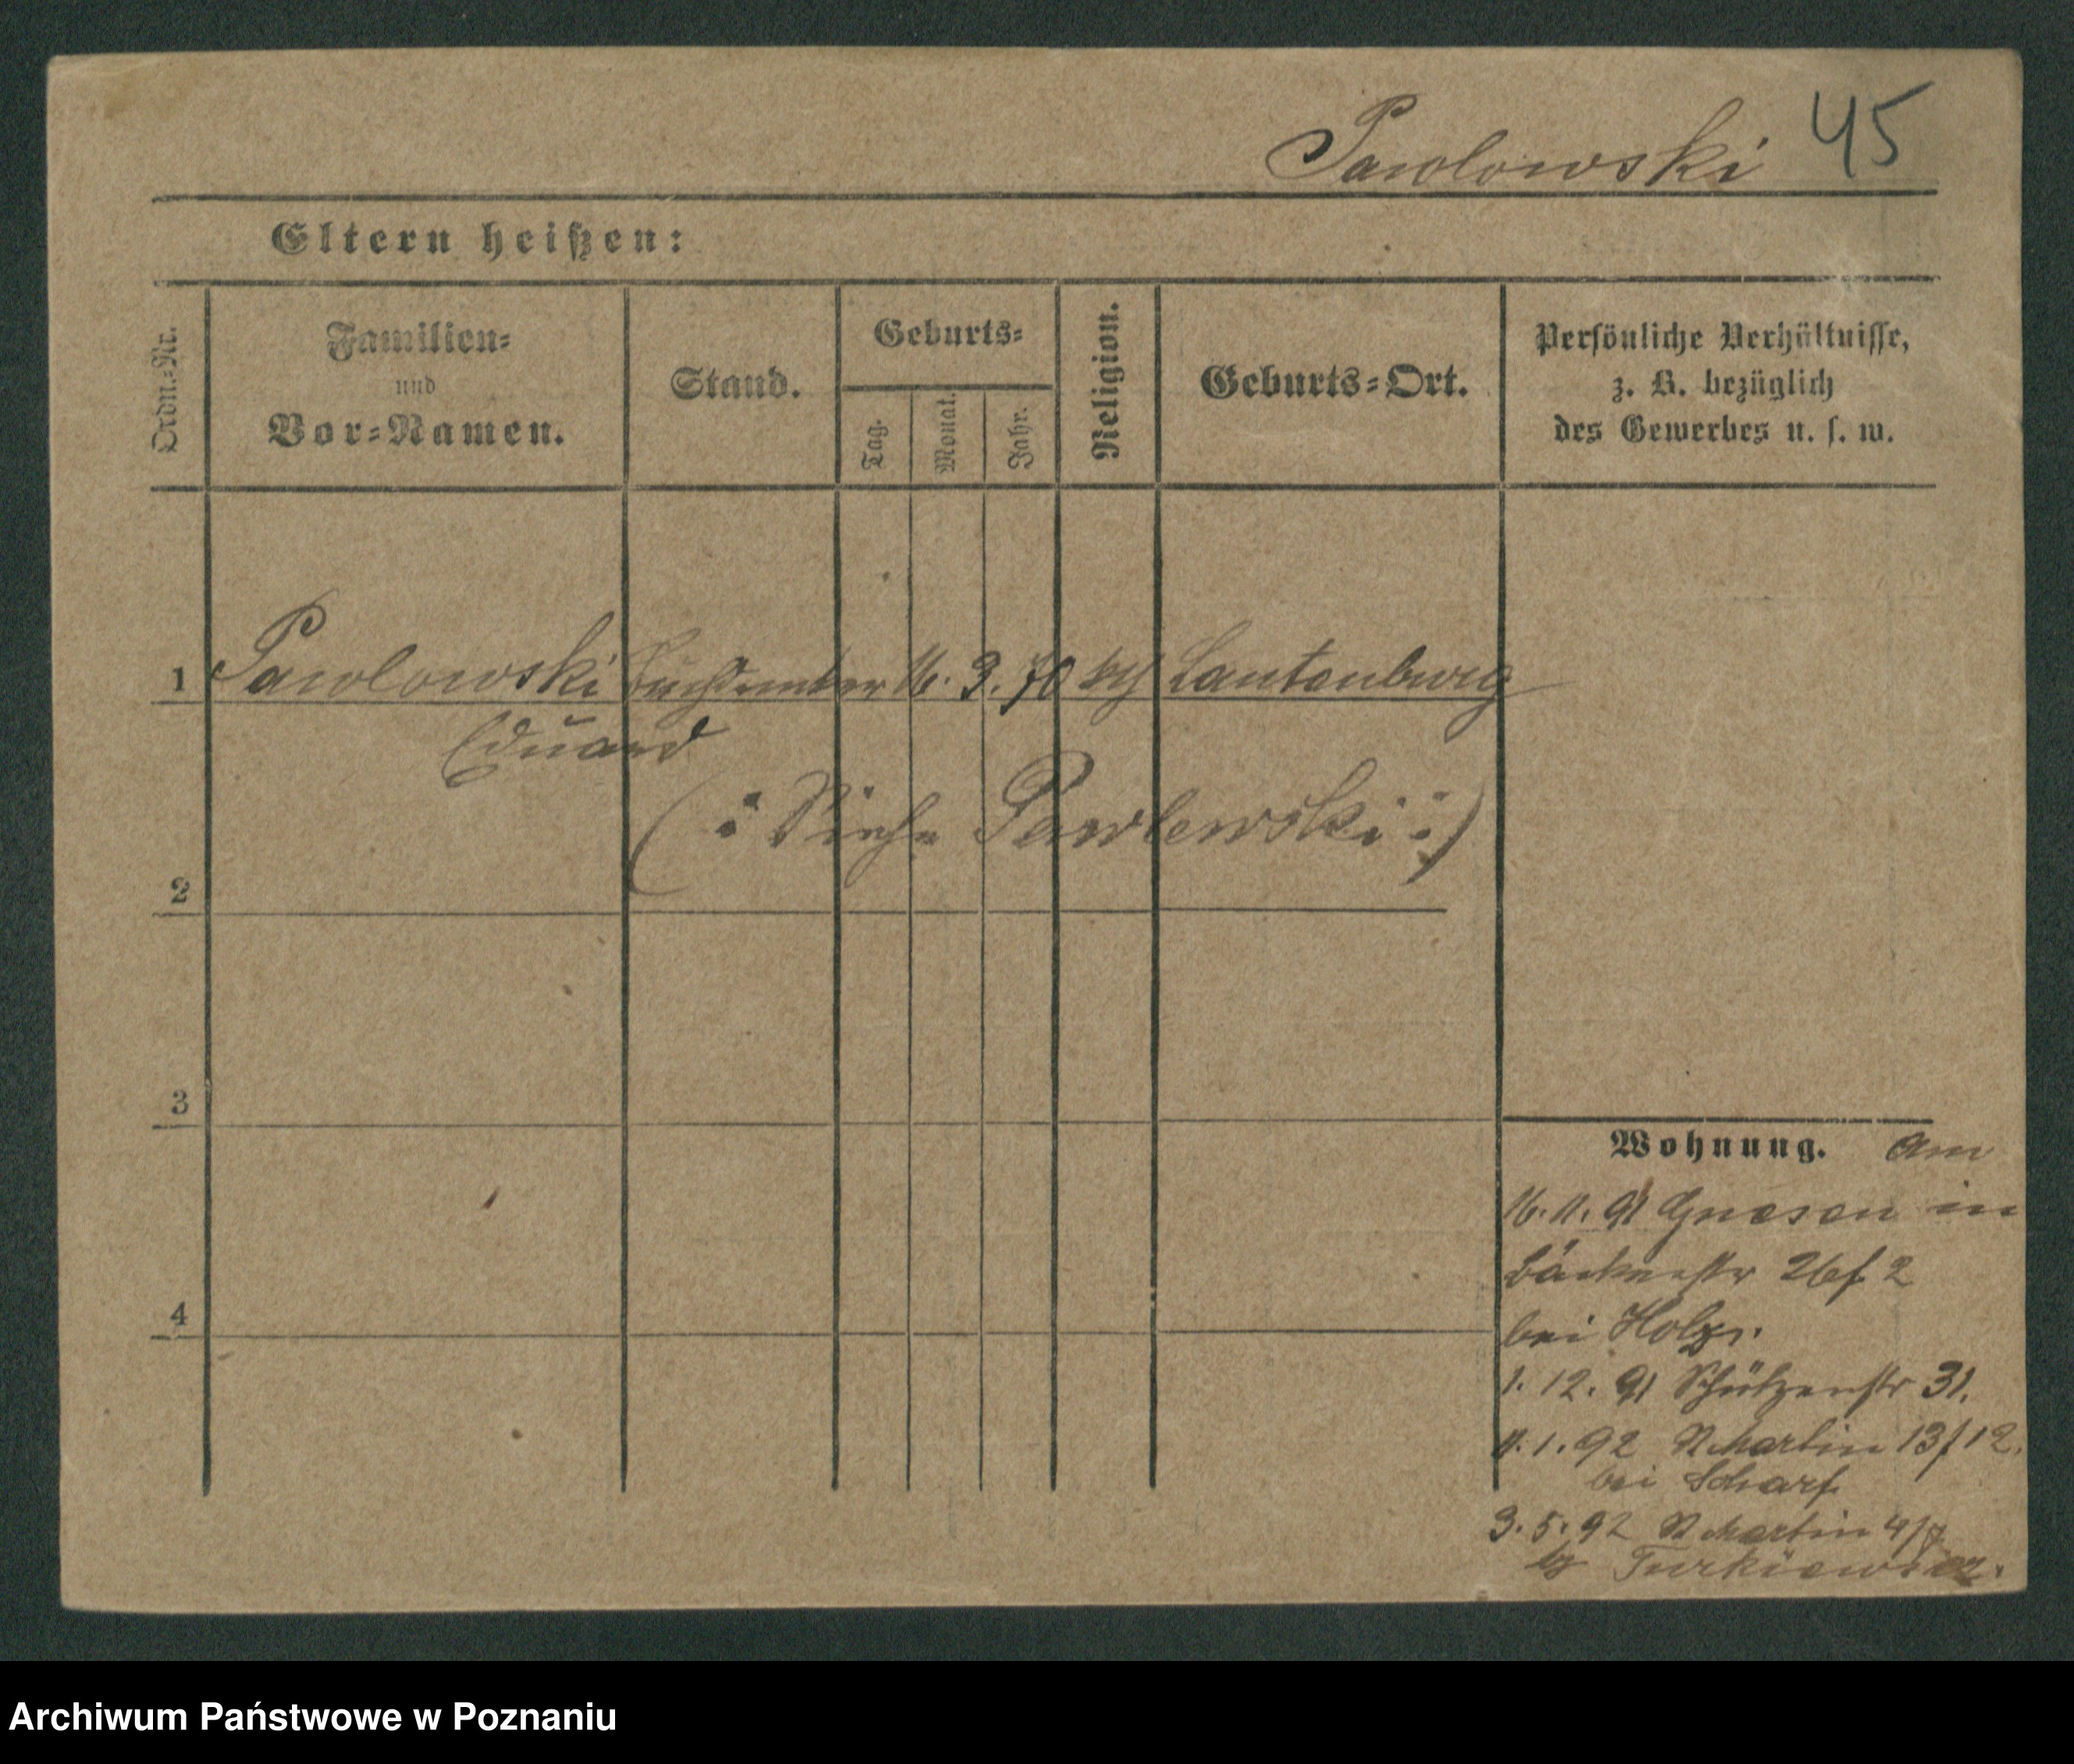 Pawlowski 45
Eltern heißen:
Ordn.-Nr.
Familien-
und
Vor-Namen.
Stand.
Geburts-
Tag.
Monat.
Jahr.
Religion.
Geburts-Ort.
Persönliche Verhältnisse,
z. B. bezüglich
des Gewerbes u. s. w.
1 Pawlowski 16. 3. 70 kth Lautenburg
Eduard
(: Siehe Pawlewski :)
2
3
4
Wohnung. Am
16. 11. 91 Gnesen in
Bäckerstr 26 f 2
bei Holz
1. 12. 91 Schützenstr 31.
11. 1. 92 St Martin 13/12.
bei Scharf
3. 5. 92 St Martin 4/7
Turkiewicz.
Archiwum Państwowe w Poznaniu